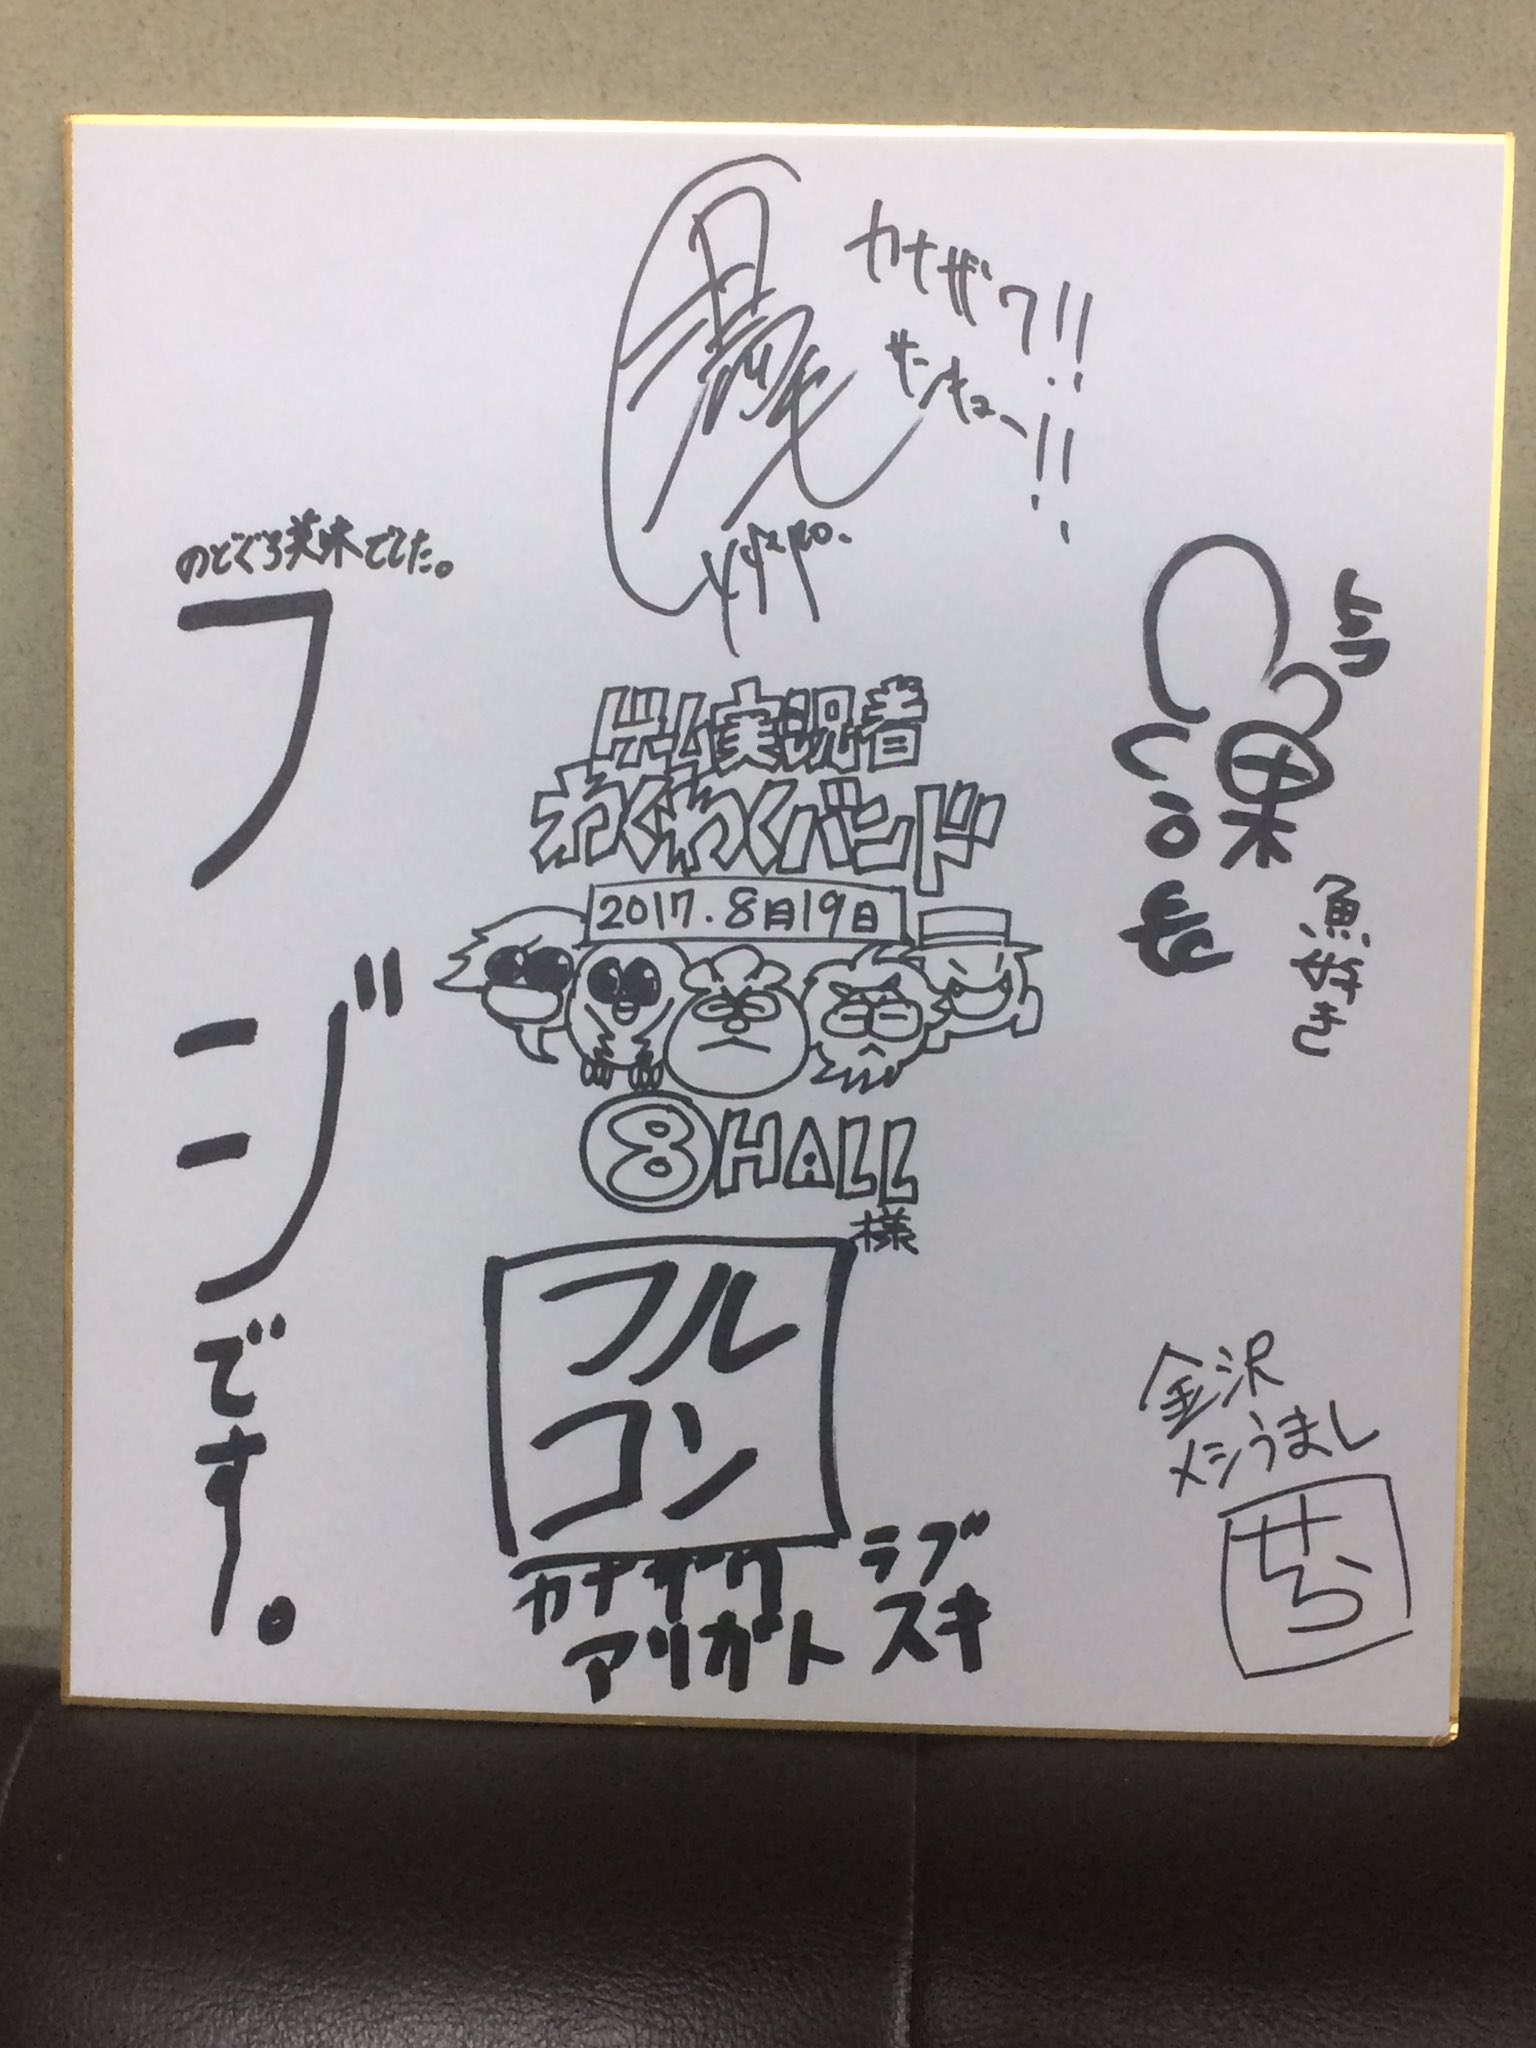 カナザワ!!
サンキュー!!
のどぐろ美味でした。
フジです。
ゲーム実況者
わくわくバンド
2017.8月19日
8HALL
様
魚好き
課長
フルコン
カナザワ ラブ
アリガト スキ
金沢
メシうまし
せらら